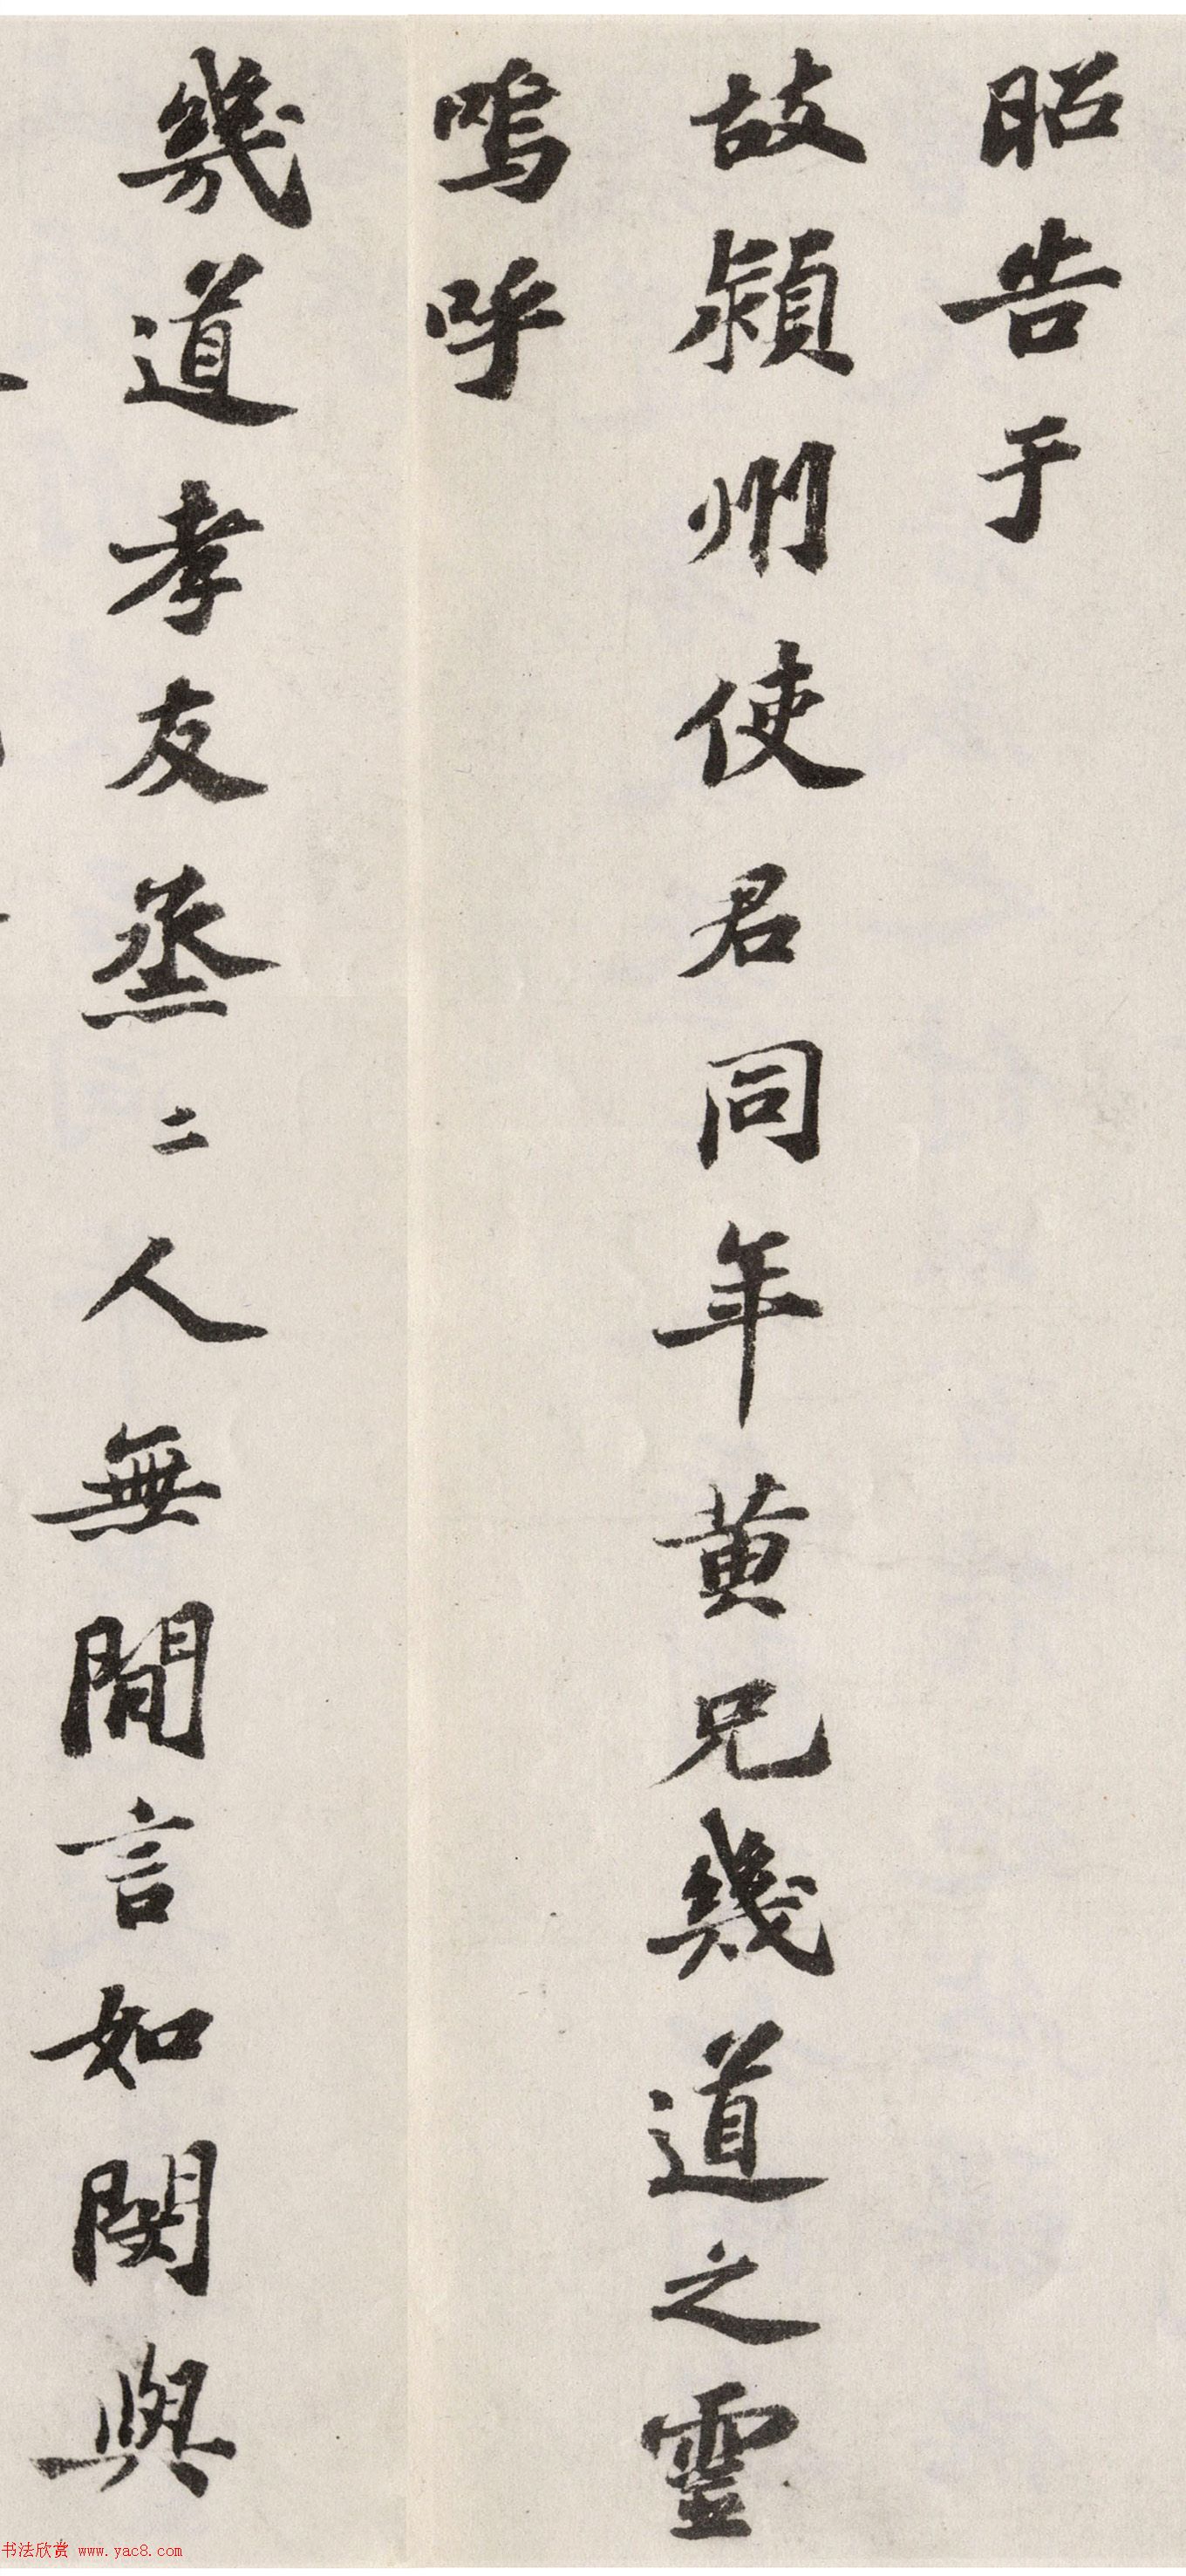 昭告于
故潁州使君同年黃兄幾道之靈
嗚呼
幾道孝友烝二人無閒言如閔與
书法欣赏 www.yac8.com